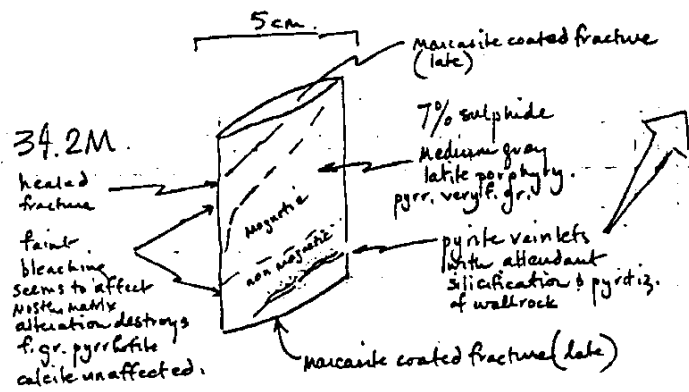 5cm.
Marcasite coated fracture
(late)
34.2M.
healed
fracture
7% sulphide
Medium gray
latite porphyry.
pyrr. very f. gr.
Magnetic
non magnetic
faint
bleaching
seems to affect
mostly matrix
alteration destroys
f. gr. pyrrhotite
calcite unaffected.
pyrite vainlets
with attendant
silicification & pyritiz.
of wallrock
Marcasite coated fracture (late)